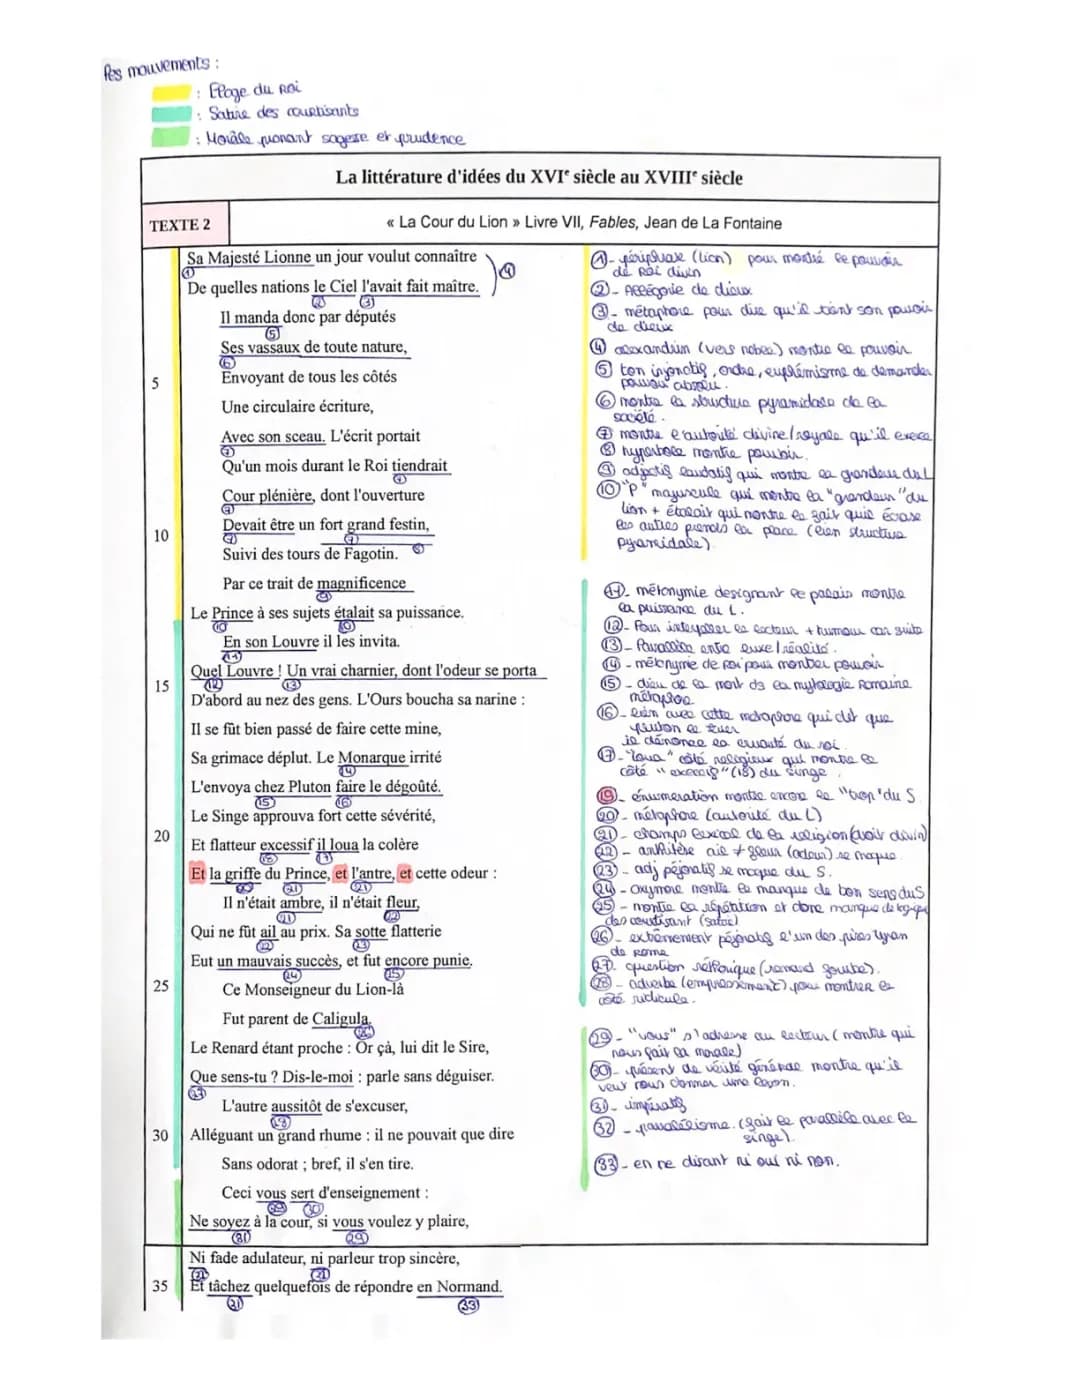 Les mouvements :
: Eloge du Roi
: Satire des courtisants
: Morale pronant sagesse et prudence
La littérature d'idées du XVIe siècle au XVIIIe siècle
TEXTE 2
« La Cour du Lion » Livre VII, Fables, Jean de La Fontaine
Sa Majesté Lionne un jour voulut connaître
De quelles nations le Ciel l'avait fait maître.
Il manda donc par députés
Ses vassaux de toute nature,
5 Envoyant de tous les côtés
Une circulaire écriture,
Avec son sceau. L'écrit portait
Qu'un mois durant le Roi tiendrait
Cour plénière, dont l'ouverture
10 Devait être un fort grand festin,
Suivi des tours de Fagotin.
Par ce trait de magnificence
Le Prince à ses sujets étalait sa puissance.
En son Louvre il les invita.
15 Quel Louvre ! Un vrai charnier, dont l'odeur se porta
D'abord au nez des gens. L'Ours boucha sa narine :
Il se fût bien passé de faire cette mine,
Sa grimace déplut. Le Monarque irrité
L'envoya chez Pluton faire le dégoûté.
20 Le Singe approuva fort cette sévérité,
Et flatteur excessif il loua la colère
Et la griffe du Prince, et l'antre, et cette odeur :
Il n'était ambre, il n'était fleur,
Qui ne fût ail au prix. Sa sotte flatterie
Eut un mauvais succès, et fut encore punie.
25 Ce Monseigneur du Lion-là
Fut parent de Caligula.
Le Renard étant proche : Or çà, lui dit le Sire,
Que sens-tu ? Dis-le-moi : parle sans déguiser.
L'autre aussitôt de s'excuser,
30 Alléguant un grand rhume : il ne pouvait que dire
Sans odorat ; bref, il s'en tire.
Ceci vous sert d'enseignement :
Ne soyez à la cour, si vous voulez y plaire,
Ni fade adulateur, ni parleur trop sincère,
35 Et tâchez quelquefois de répondre en Normand.
① - périphrase (lion) pour montré le pouvoir
de Roi divin
② - Allégorie de dieux
③ - métaphore pour dire qu'il tient son pouvoir
de dieux
④ alexandrin (vers noble) montre le pouvoir
⑤ ton injonctif, ordre, euphémisme de demander
pouvoir absolu.
⑥ montre la structure pyramidale de la
société.
⑦ montre l'autorité divine/royale qu'il exerce
⑧ hyperbole montre pouvoir.
⑨ adjectif laudatif qui montre la grandeur du L
⑩ "P" majuscule qui montre la "grandeur" du
lion + étalait qui montre le fait qu'il écrase
les autres prends la place (lien structure
pyramidale).
⑪ - métonymie designant le palais montre
la puissance du L.
⑫ - Pour interpeller le lecteur + humour car suite
⑬ - Parallèle entre luxe/réalité.
⑭ - métonymie de Roi pour montrer pouvoir
⑮ - dieu de la mort ds la mythologie Romaine
métaphore
⑯ - lien avec cette métaphore qui dit que
le tuer
il dénonce la cruauté du roi.
⑰ - "loua" côté religieux qui montre le
côté "excessif" (18) du singe.
⑲ - énumération montre encore le "trop" du S
⑳ - métaphore (autorité du L)
㉑ - champs lexical de la religion (droit divin)
㉒ - antithèse ail ≠ fleur (odeur) se moque
㉓ - adj péjoratif se moque du S.
㉔ - oxymore montre le manque de bon sens du S
㉕ - montre la répétition et donc manque de logique
des courtisant (satire)
㉖ - extrêmement péjoratif l'un des pires tyran
de Rome
㉗ - question réthorique (renard fourbe).
㉘ - adverbe (empressement) pour montrer le
côté ridicule.
㉙ - "vous" s'adresse au lecteur (montre qui
nous fait la morale)
㉚ - présent de vérité générale montre qu'il
veut nous donner une leçon.
㉛ - impératif
㉜ - parallélisme. (fait le parallèle avec le
singe).
㉝ - en ne disant ni oui ni non.